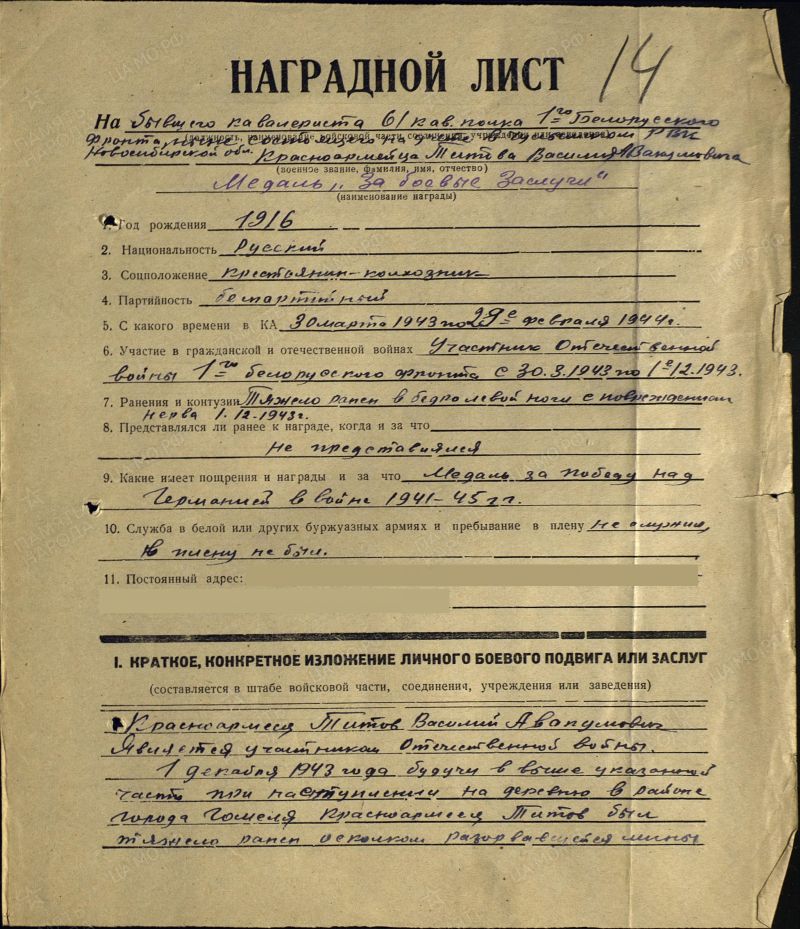 НАГРАДНОЙ ЛИСТ
14
На бывшего кавалериста 61 кав. полка 1го Белорусского
фронта, ныне состоящего на в РВК
(должность, наименование войсковой части, соединения, учреждения или заведения)
Новосибирской обл. Красноармейца Титова Василия Авакумовича
(военное звание, фамилия, имя, отчество)
Медаль „За боевые заслуги"
(наименование награды)
1. Год рождения 1916
2. Национальность Русский
3. Соцположение крестьянин-колхозник
4. Партийность беспартийный
5. С какого времени в КА 30 марта 1943 по 29е февраля 1944г.
6. Участие в гражданской и отечественной войнах Участник Отечественной
войны 1го белорусского фронта с 30.3.1943 по 1е 12.1943.
7. Ранения и контузии Тяжело ранен в бедро левой ноги с повреждением
нерва 1.12.1943г.
8. Представлялся ли ранее к награде, когда и за что
не представлялся
9. Какие имеет пощрения и награды и за что Медаль за победу над
Германией в войне 1941-45гг.
10. Служба в белой или других буржуазных армиях и пребывание в плену не служил,
в плену не был.
11. Постоянный адрес:
I. КРАТКОЕ, КОНКРЕТНОЕ ИЗЛОЖЕНИЕ ЛИЧНОГО БОЕВОГО ПОДВИГА ИЛИ ЗАСЛУГ
(составляется в штабе войсковой части, соединения, учреждения или заведения)
Красноармеец Титов Василий Авакумович
Является участником Отечественной войны.
1 декабря 1943 года будучи в выше указанной
части при наступлении на деревню в районе
города Гомеля Красноармеец Титов был
тяжело ранен осколком разорвавшейся мины